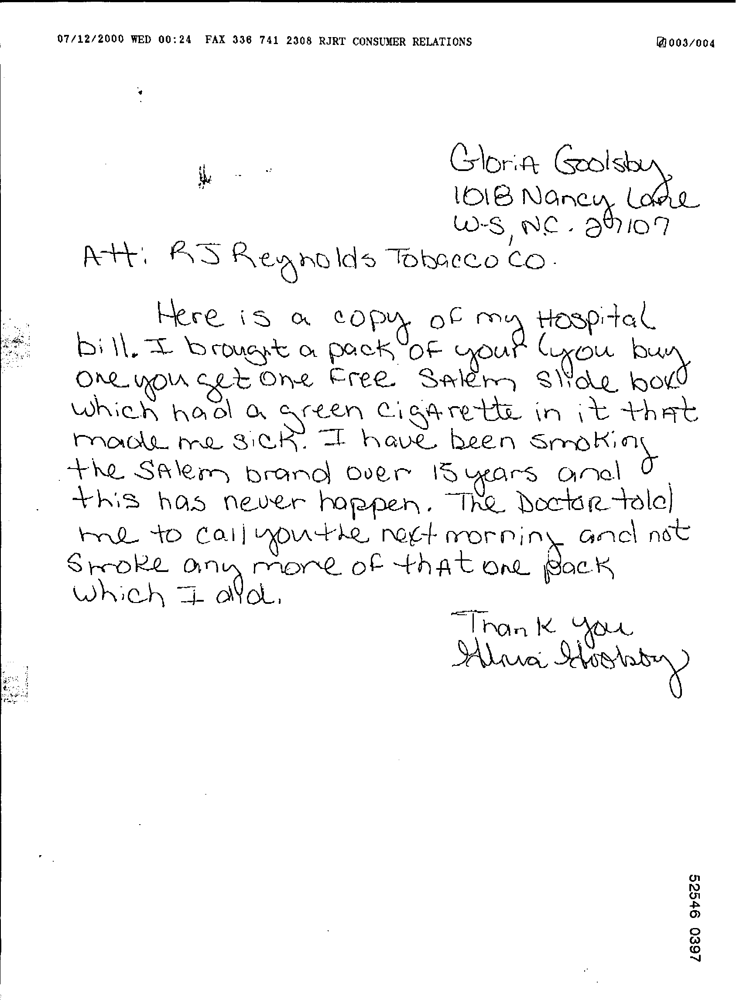 07/12/2000 WED 00:24 FAX 336 741 2308 RJRT CONSUMER RELATIONS 003/004
GloriA Goolsby
1018 Nancy Lane
W-S, N.C. 27107
Att: RJ Reynolds Tobacco Co.
Here is a copy of my Hospital
bill. I brought a pack of your (you buy
one you get one Free SAlem Slide box)
which had a green cigArette in it thAt
made me sick. I have been smoking
the SAlem brand over 15 years and
this has never happen. The DoctoR told
me to call you the next morning and not
Smoke any more of thAt one pack
which I did.
Thank you
Gloria Goolsby
52546 0397